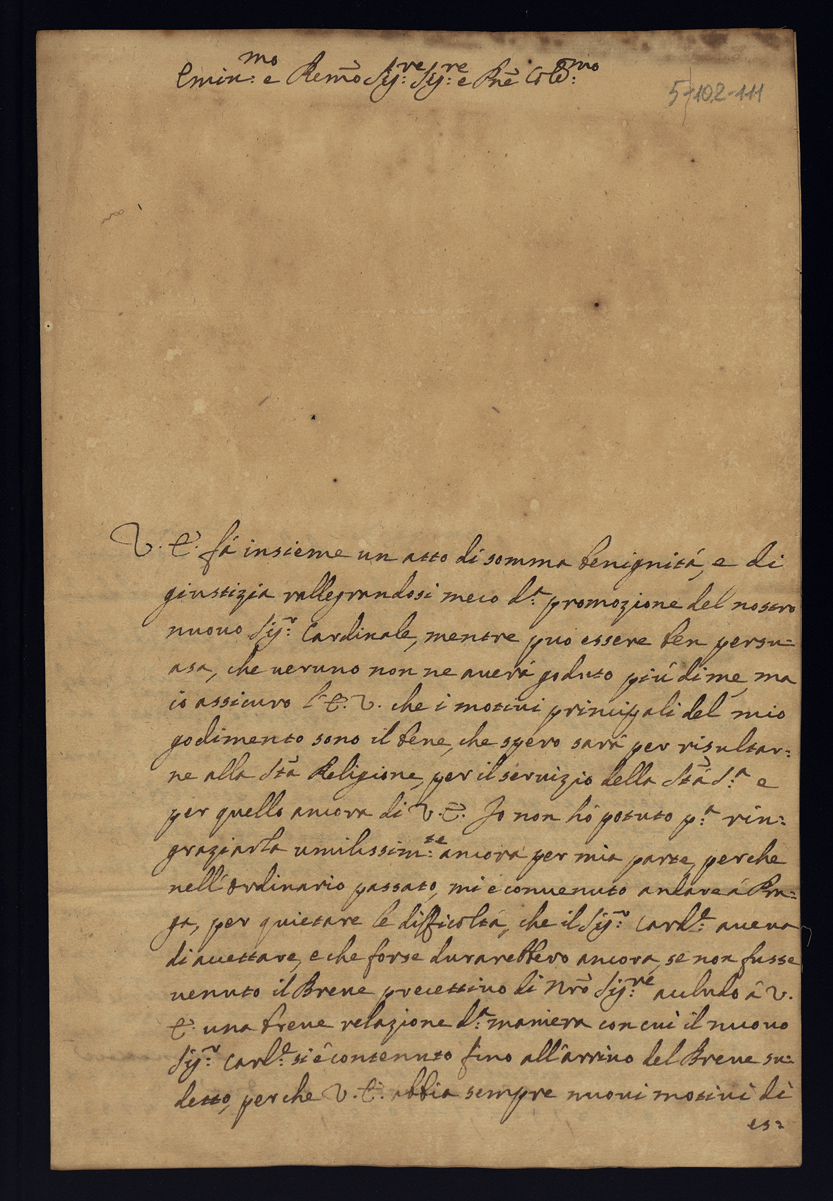 Emin:mo e Remo Sig:re Sig:re e Pne Col:mo
5-102-111
V. E. fá insieme un atto di somma benignitá, e di
giustizia rallegrandosi meco d.a promozione del nostro
nuovo Sig:r Cardinale, mentre puo essere ben persu=
asa, che veruno non ne averá goduto piú di me, ma
io assicuro l'E. V. che i motivi principali del mio
godimento sono il bene, che spero sará per risultar=
ne alla Sta Religione, per il servizio della Stà S.a e
per quello ancora di V. E. Io non hó potuto p.a rin=
graziarla umilissim:te ancora per mia parte, perche
nell'Ordinario passato, mi é convenuto andare á Pra=
ga, per quietare le difficoltá, che il Sig:r Card.le aveva
di accettare, e che forse durarebbero ancora, se non fusse
venuto il Breve precettivo di Nro Sig:re acludo á V.
E. una breve relazione d.a maniera con cui il nuovo
Sig:r Card.le si é contenuto fino all'arrivo del Breve su=
detto, perche V. E. abbia sempre nuovi motivi di
es=